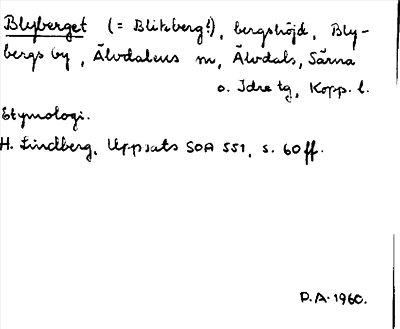 Blyberget (= Blitzberg?), bergshöjd, Bly-
bergs by, Älvdalens sn, Älvdals, Särna
o. Idre tg, Kopp. l.
Etymologi.
H. Lindberg, Uppsats SOA 551, s. 60 ff.
D.A. 1960.